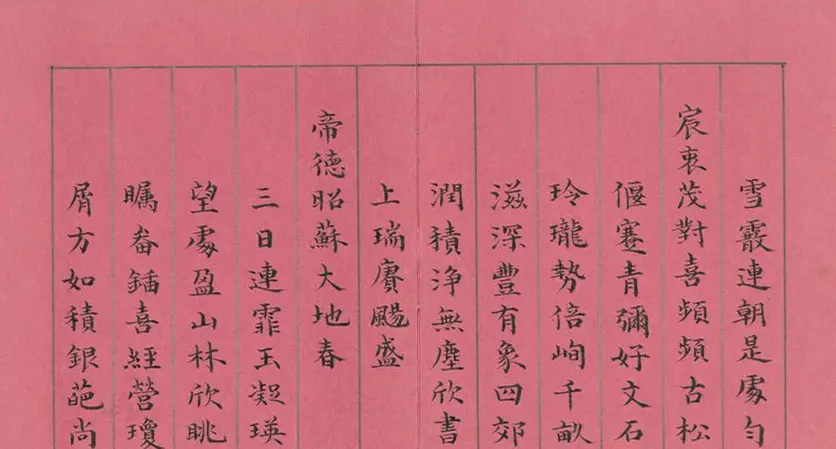 雪霰連朝是處勻
宸衷茂對喜頻頻古松
偃蹇青彌好文石
玲瓏勢倍峋千畝
滋深豐有象四郊
潤積浄無塵欣書
上瑞賡颺盛
帝德昭蘇大地春
三日連霏玉凝瑛
望處盈山林欣眺
矚畚鍤喜經營瓊
屑方如積銀葩尚